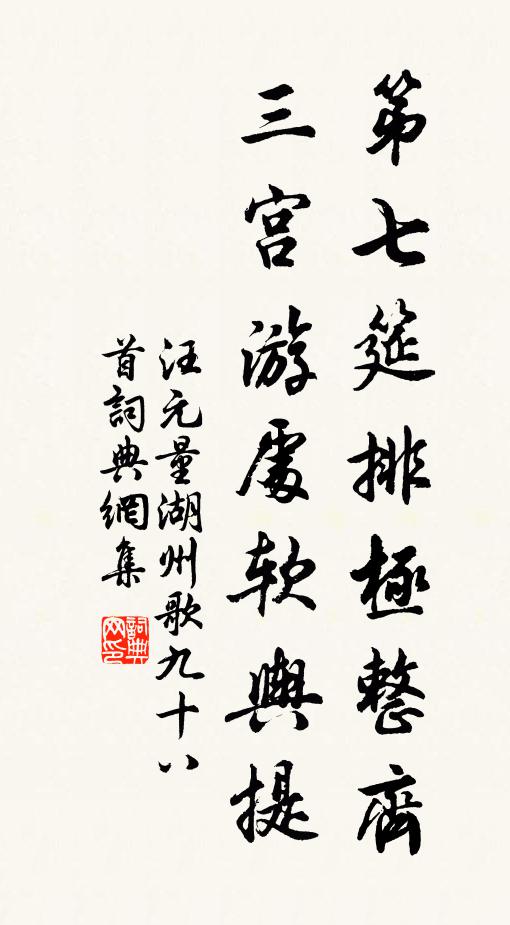 第七筵排極整齊
三宮游處軟輿提
汪元量湖州歌九十八
首詞典網集
詞典
网印